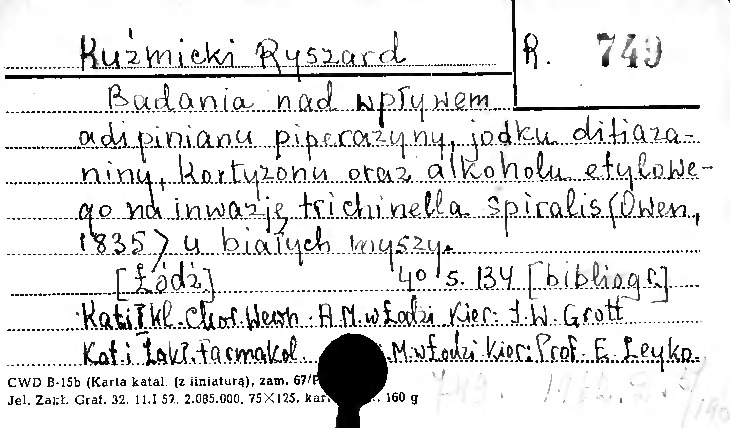 Kuźmicki Ryszard R. 749
Badania nad wpływem
adipinianu piperazyny, jodku ditiaza-
niny, kortyzonu oraz alkoholu etylowe-
go na inwazję trichinella spiralis (Owen,
1835) u białych myszy.
[Łódź] 4° s. 134 [bibliogr.]
Kat. i II kl. Chor. Wewn. A.M. w Łodzi Kier: J. W. Grott
Kat. i Zakł. Farmakol. M. w Łodzi Kier: Prof. E. Leyko.
CWD B-15b (Karta katal. (z liniaturą), zam. 67/P
Jel. Zakł. Graf. 32. 11.I 57. 2.085.000. 75×125. kar. 160 g
749.